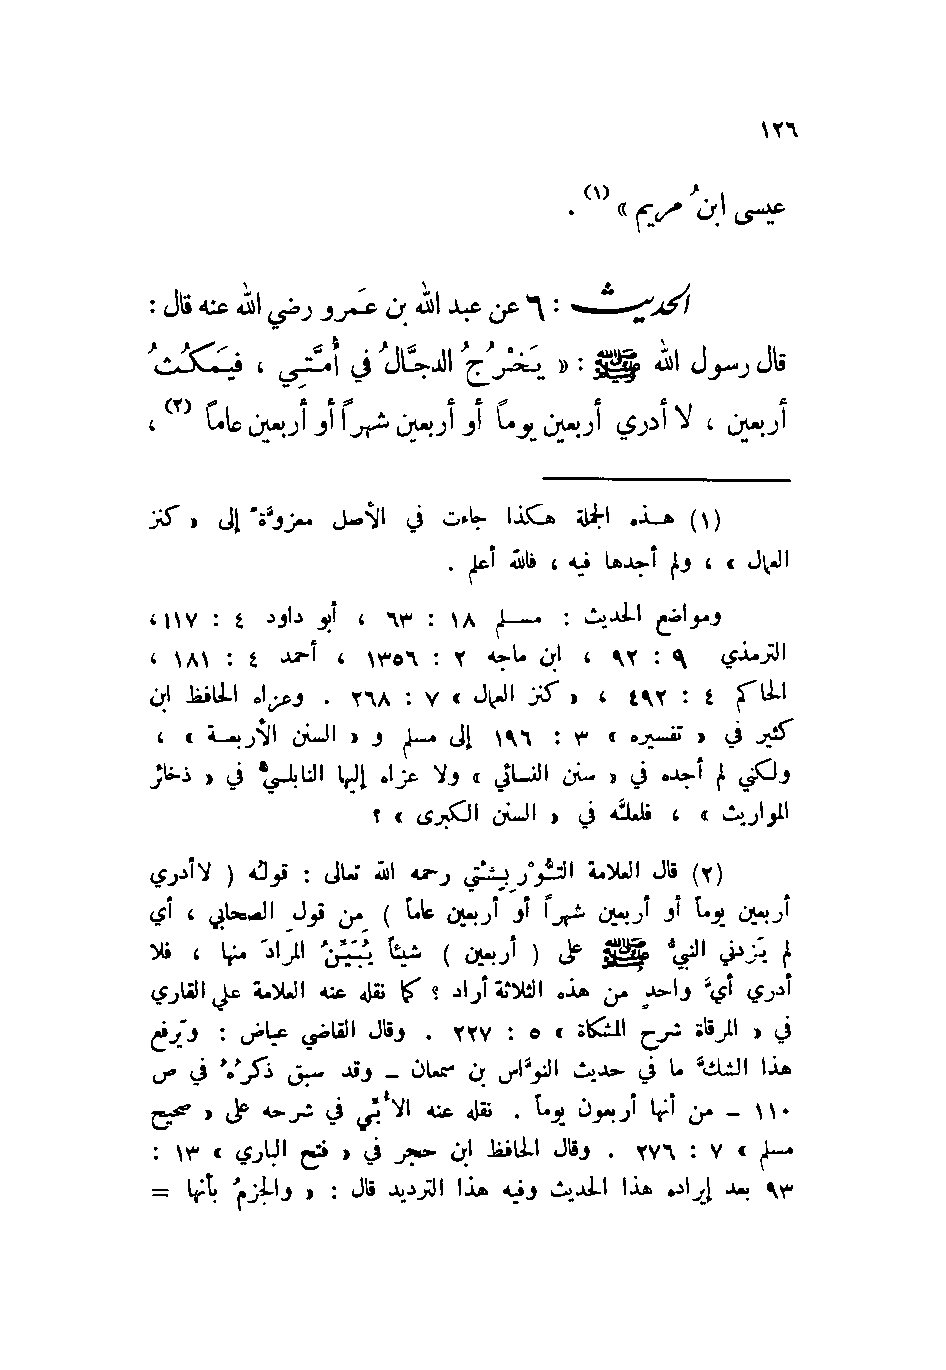 ١٢٦
عيسى ابنُ مريم » (١) .
الحديث : ٦ عن عبد الله بن عَمرو رضي الله عنه قال :
قال رسول الله ﷺ : « يَخْرُجُ الدجَّالُ في أُمَّتِي ، فيَمكُثُ
أربعين ، لا أدري أربعين يوماً أو أربعين شهراً أو أربعين عاماً (٢) ،
(١) هـذه الجملة هكذا جاءت في الأصل معزوَّة إلى « كنز
العمال » ، ولم أجدها فيه ، فالله أعلم .
ومواضع الحديث : مسلم ١٨ : ٦٣ ، أبو داود ٤ : ١١٧ ،
الترمذي ٩ : ٩٢ ، ابن ماجه ٢ : ١٣٥٦ ، أحمد ٤ : ١٨١ ،
الحاكم ٤ : ٤٩٢ ، « كنز العمال » ٧ : ٢٦٨ . وعزاه الحافظ ابن
كثير في « تفسيره » ٣ : ١٩٦ إلى مسلم و « السنن الأربعة » ،
ولكني لم أجده في « سنن النسائي » ولا عزاه إليها النابلسيُّ في « ذخائر
المواريث » ، فلعلَّه في « السنن الكبرى » ؟
(٢) قال العلامة التُّورِبِشْتِي رحمه الله تعالى : قولُه ( لا أدري
أربعين يوماً أو أربعين شهراً أو أربعين عاماً ) مِن قولِ الصحابي ، أي
لم يَزِدني النبيُّ ﷺ على ( أربعين ) شيئاً يُبَيِّنُ المرادَ منها ، فلا
أدري أيَّ واحدٍ من هذه الثلاثة أراد ؟ كما نقله عنه العلامة علي القاري
في « المرقاة شرح المشكاة » ٥ : ٢٢٧ . وقال القاضي عياض : ويَرفع
هذا الشكَّ ما في حديث النوَّاس بن سمعان – وقد سبق ذكرُهُ في ص
١١٠ – من أنها أربعون يوماً . نقله عنه الأُبِّي في شرحه على « صحيح
مسلم » ٧ : ٢٧٦ . وقال الحافظ ابن حجر في « فتح الباري » ١٣ :
٩٣ بعد إيراده هذا الحديث وفيه هذا الترديد قال : « والجزمُ بأنها =